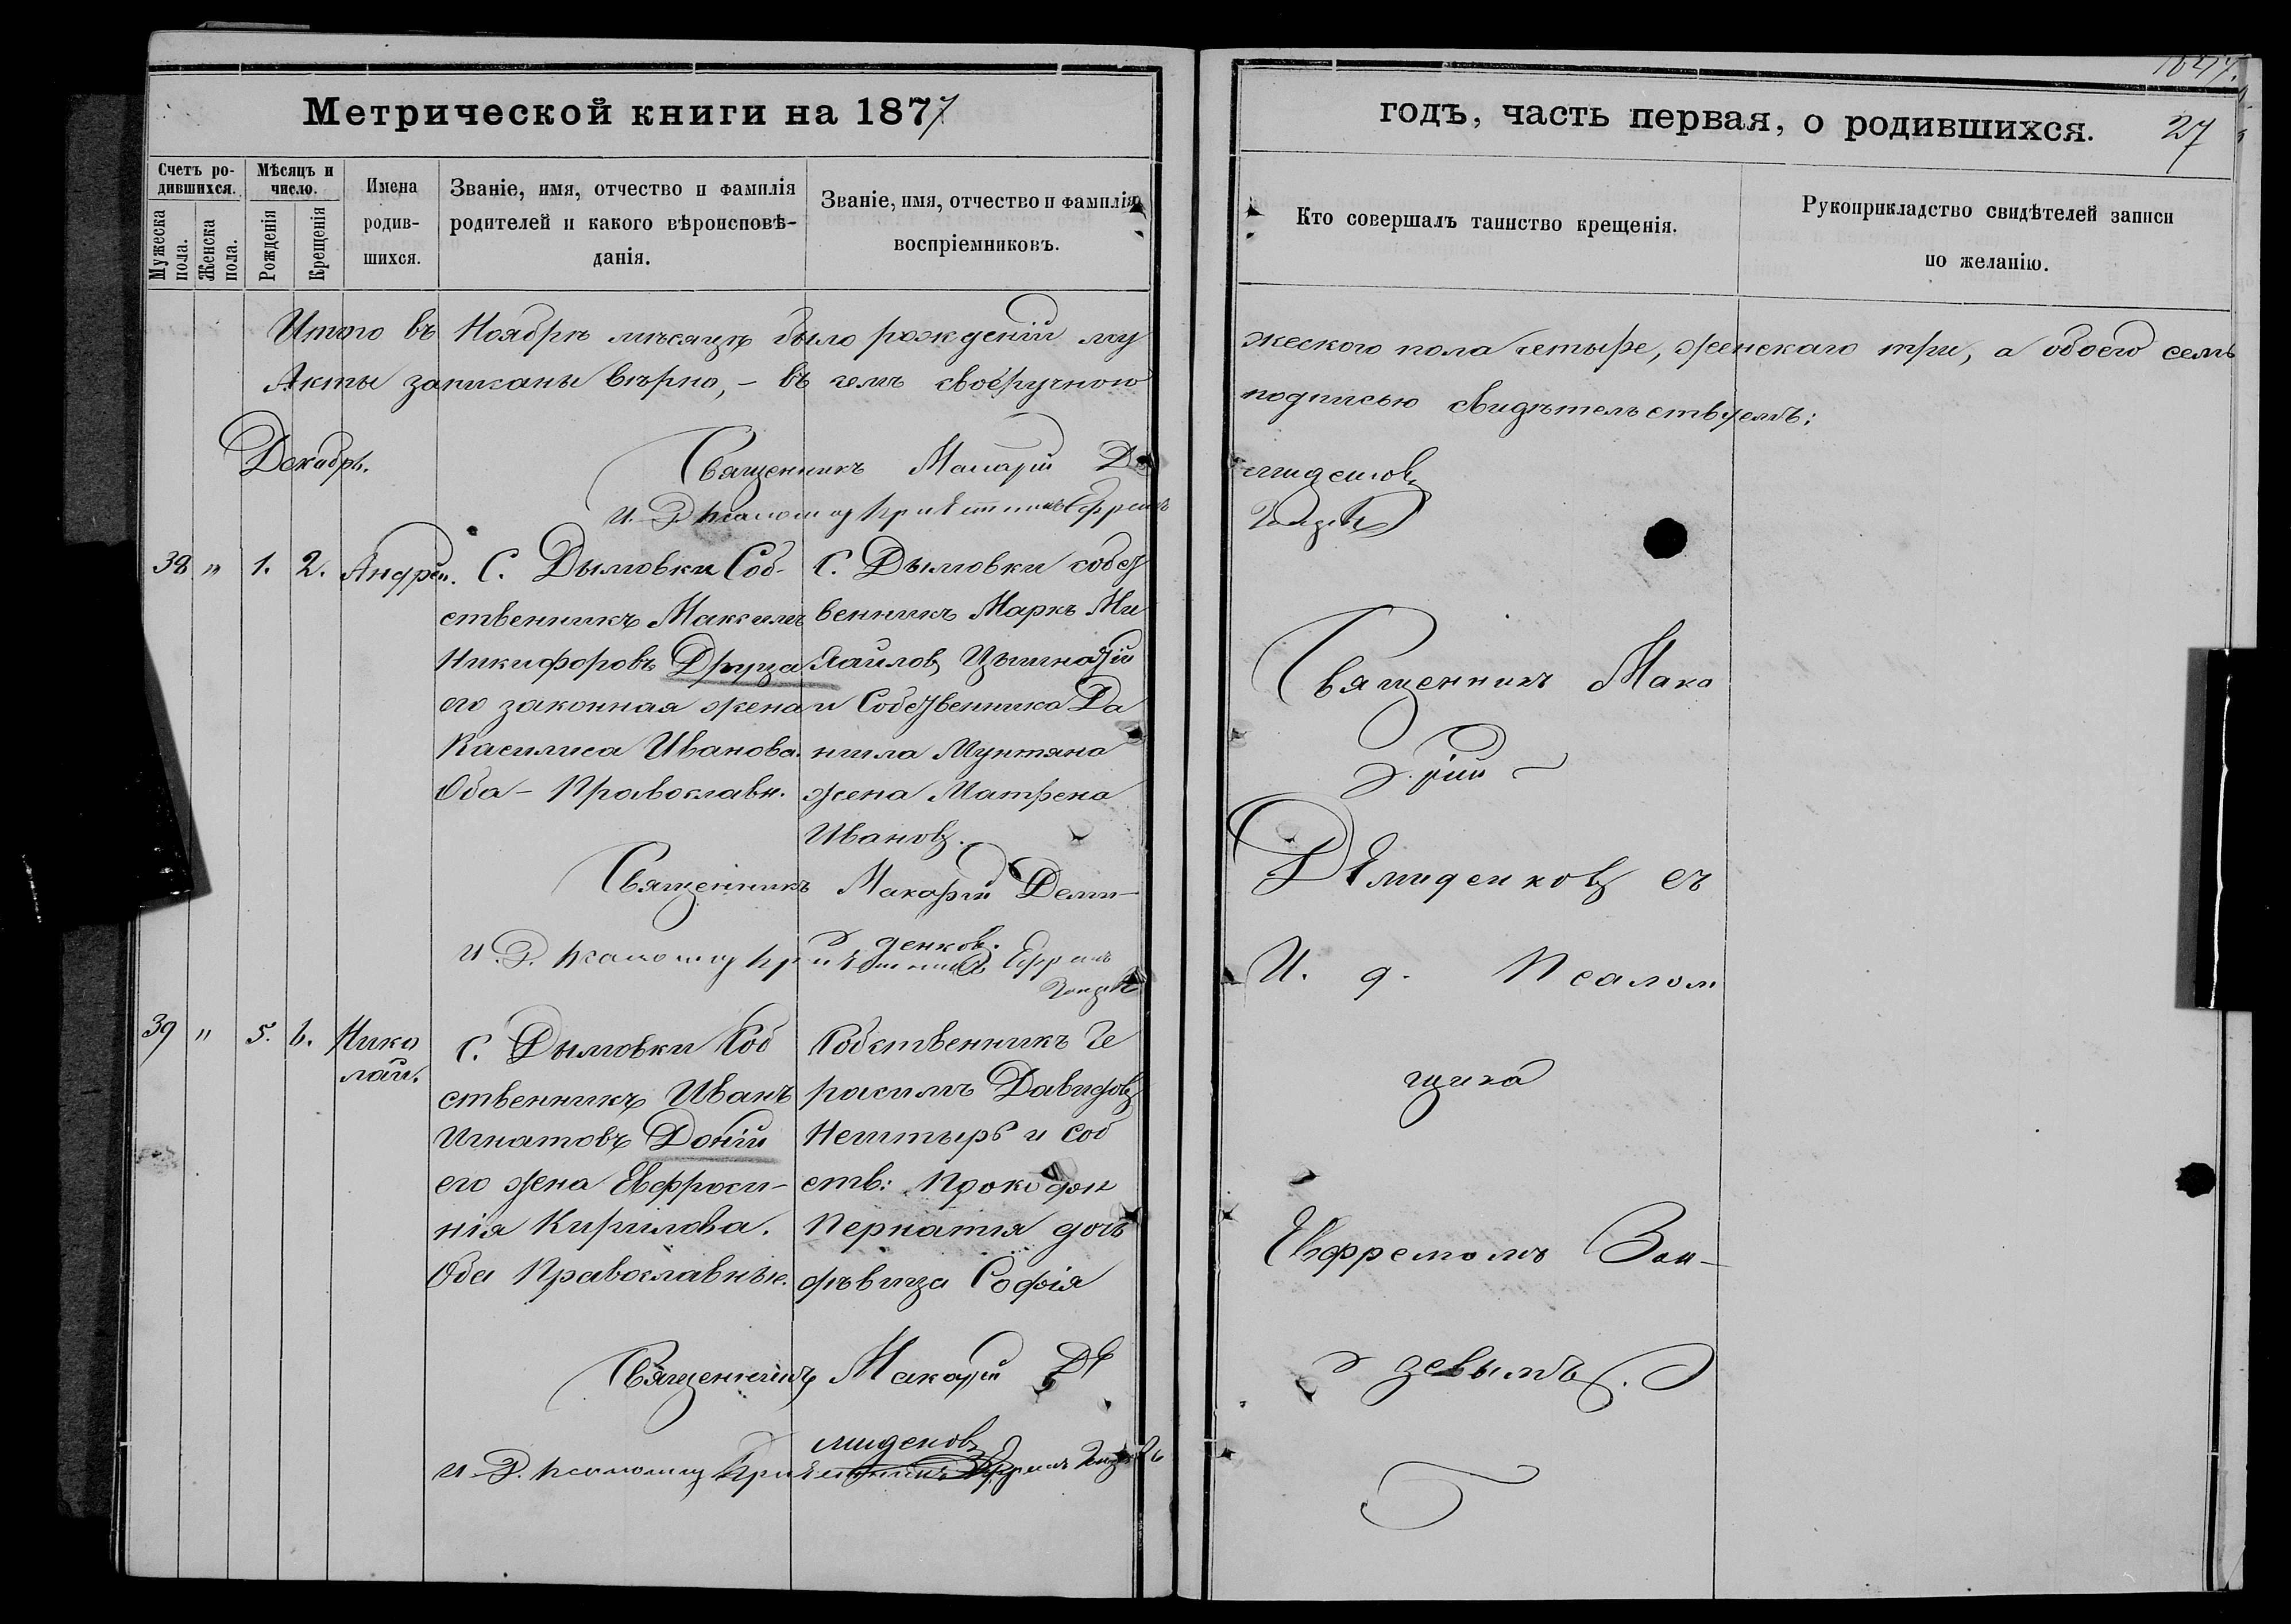 Метрической книги на 1877
годъ, часть первая, о родившихся. 27
Счетъ родившихся.
Мужеска пола.
Женска пола.
Мѣсяцъ и число.
Рожденія
Крещенія
Имена родившихся.
Званіе, имя, отчество и фамилія родителей и какого вѣроисповѣданія.
Званіе, имя, отчество и фамилія воспріемниковъ.
Кто совершалъ таинство крещенія.
Рукоприкладство свидѣтелей записи по желанію.
Итого въ Ноябрѣ мѣсяцѣ было рожденій му
жеского пола четыре, женскаго три, а обоего семь
Акты записаны вѣрно, – въ чемъ своеручною
подписью свидѣтельствуемъ:
Декабрь.
Священникъ Макарій Де
миденковъ
38 " 1. 2. Андрей.
С. Дымовки Соб-
ственникъ Максимъ
Никифоровъ Друца
его законная жена
Василиса Иванова.
Оба – Православн.
С. Дымовки собст
венникъ Маркъ Ми
хайловъ
и Собственника Да
нила Мунтяна
жена Матрена
Иванов.
Священникъ Макарій Деми-
денковъ.
39 " 5. 6. Нико
лай.
С. Дымовки Соб
ственникъ Иванъ
Игнатовъ Доній
его жена Евфроси-
нія Кирилова.
Оба Православные.
Собственникъ Ге
расимъ Давидовъ
и соб
ств:
дочь
дѣвица Софія
Священникъ Макарій Де
миденковъ
Священникъ Мака
рій
Демиденковъ съ
И. д. Псалом
щика
Ефремомъ